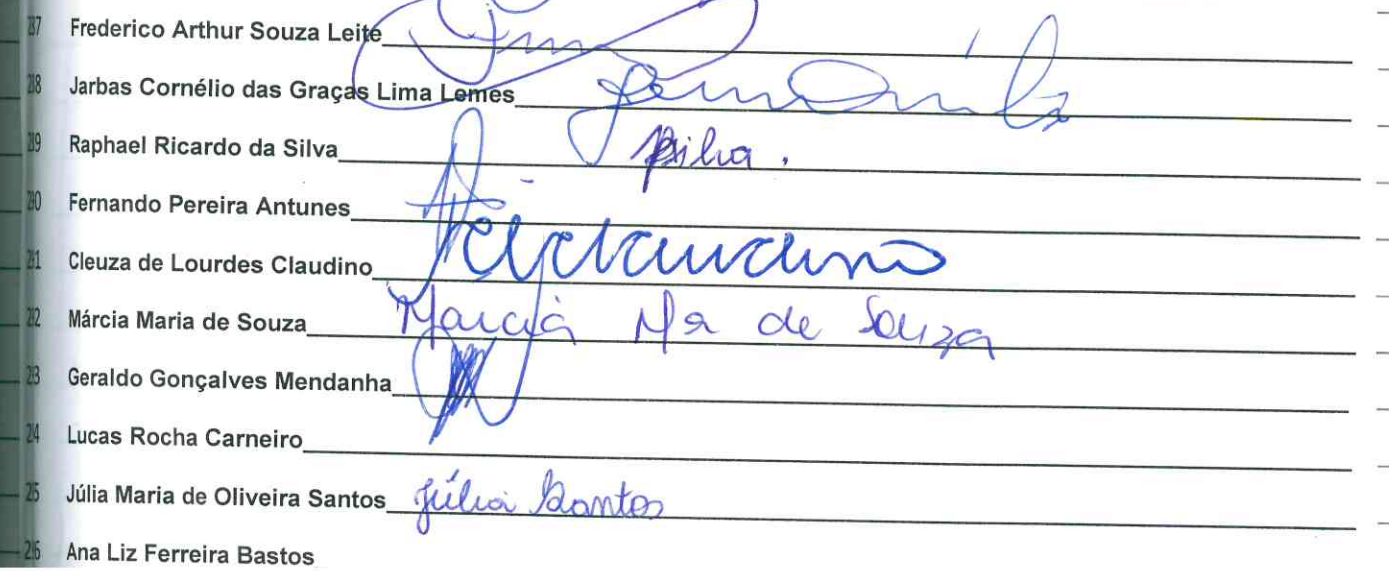 Frederico Arthur Souza Leite
Jarbas Cornélio das Graças Lima Lemes
Raphael Ricardo da Silva Silva.
Fernando Pereira Antunes
Cleuza de Lourdes Claudino Claudino
Márcia Maria de Souza Marcia Mª de Souza
Geraldo Gonçalves Mendanha
Lucas Rocha Carneiro
Júlia Maria de Oliveira Santos Júlia Santos
Ana Liz Ferreira Bastos